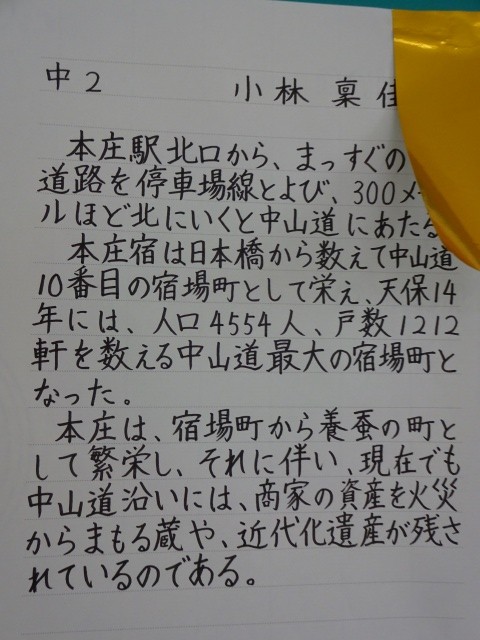 中2 小林 稟佳
本庄駅北口から、まっすぐの
道路を停車場線とよび、300メ
ルほど北にいくと中山道にあたる
本庄宿は日本橋から数えて中山道
10番目の宿場町として栄え、天保14
年には、人口4554人、戸数1212
軒を数える中山道最大の宿場町と
なった。
本庄は、宿場町から養蚕の町と
して繁栄し、それに伴い、現在でも
中山道沿いには、商家の資産を火災
からまもる蔵や、近代化遺産が残さ
れているのである。